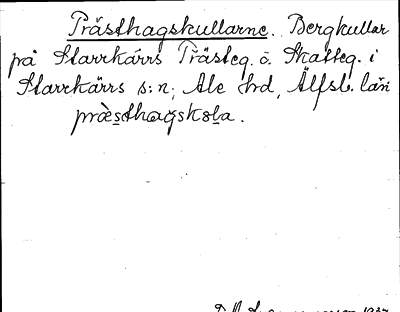 Prästhagskullarne. Bergkullar
på Starrkärrs Prästeg. o. Skatteg. i
Starrkärrs s:n; Ale hrd, Älfsb. län
præsthagskɷla.